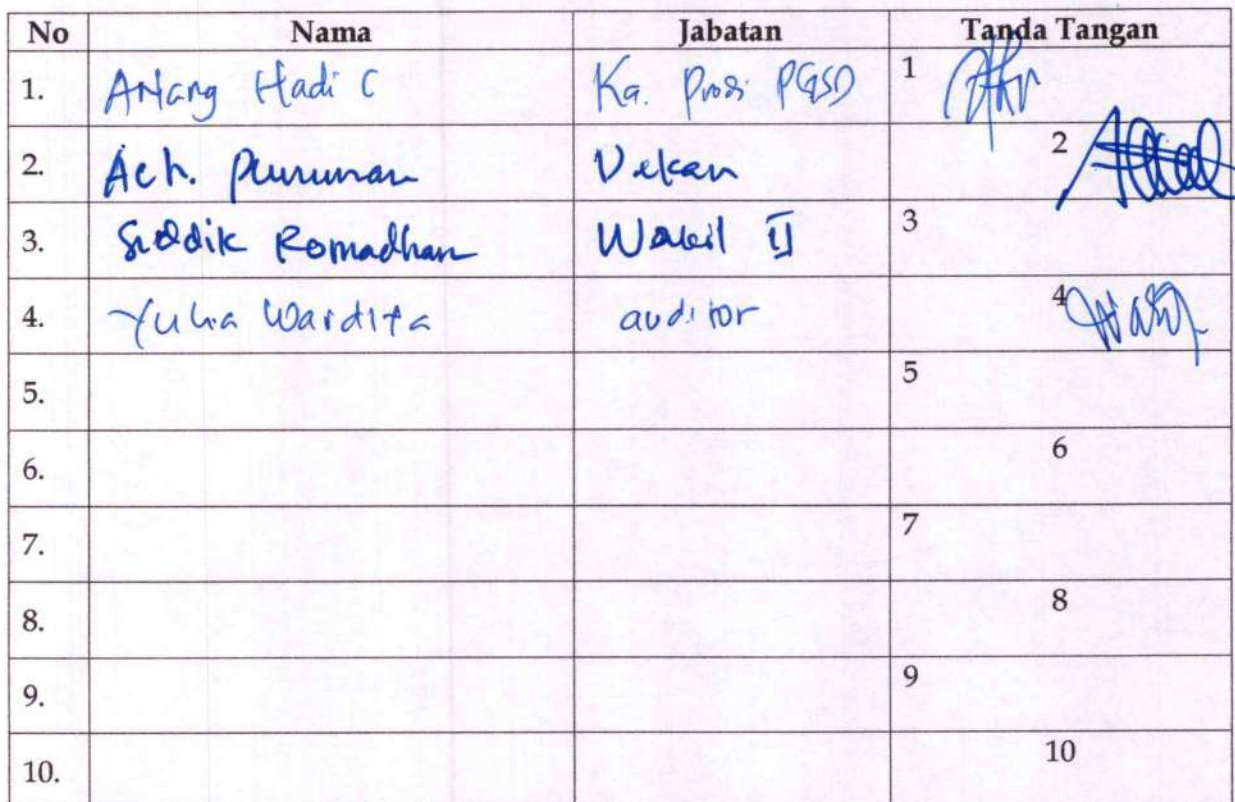 No Nama Jabatan Tanda Tangan
1. Anang Hadi C Ka. Prodi PGSD 1
2. Ach. Purwman Dekan 2
3. Siddik Romadhan Wakil II 3
4. Yulia Wardita auditor 4
5. 5
6. 6
7. 7
8. 8
9. 9
10. 10